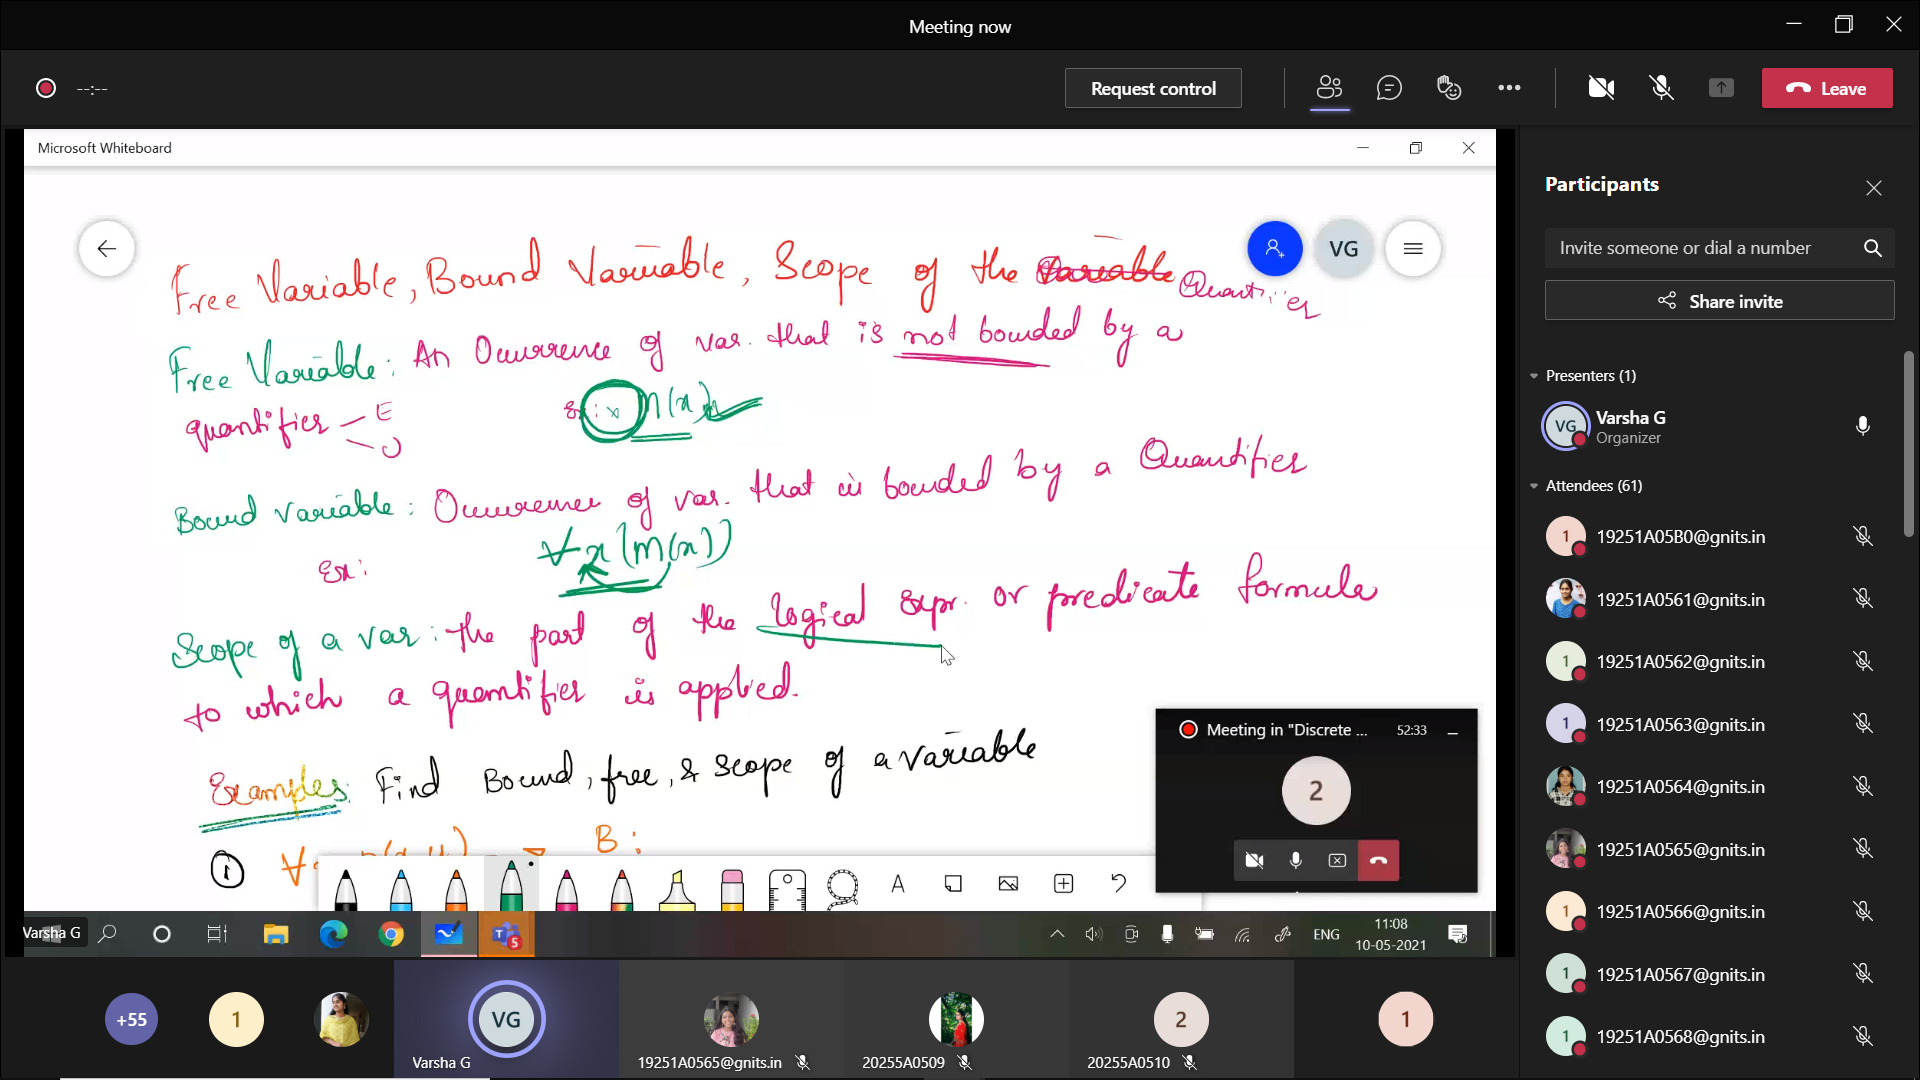 Meeting now
--:--
Request control
Leave
Microsoft Whiteboard
VG
Free Variable, Bound Variable, Scope of the Variable Quantifier
Free Variable: An Occurrence of var. that is not bounded by a
quantifier – E
Ex: x M(x)
Bound Variable: Occurrence of var. that is bounded by a Quantifier
Ex: ∀x(M(x))
Scope of a var: the part of the logical expr. or predicate formula
to which a quantifier is applied.
Examples: Find Bound, free, & Scope of a variable
① B:
A
Meeting in "Discrete ... 52:33
2
Varsha G
5
ENG
11:08
10-05-2021
Participants
Invite someone or dial a number
Share invite
Presenters (1)
VG
Varsha G
Organizer
Attendees (61)
1 19251A05B0@gnits.in
19251A0561@gnits.in
1 19251A0562@gnits.in
1 19251A0563@gnits.in
19251A0564@gnits.in
19251A0565@gnits.in
1 19251A0566@gnits.in
1 19251A0567@gnits.in
1 19251A0568@gnits.in
+55
1
VG
Varsha G
19251A0565@gnits.in
20255A0509
2
20255A0510
1